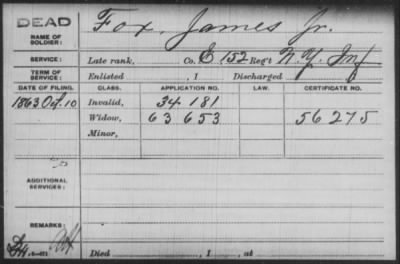 DEAD
NAME OF SOLDIER: Fox, James Jr.
SERVICE: Late rank, Co. E 152 Reg't N.Y. Inf
TERM OF SERVICE: Enlisted , 1 Discharged
DATE OF FILING. CLASS. APPLICATION NO. LAW. CERTIFICATE NO.
1863 Oct. 10 Invalid, 34 181
Widow, 63 653 56 275
Minor,
ADDITIONAL SERVICES:
REMARKS:
Died , 1 , at